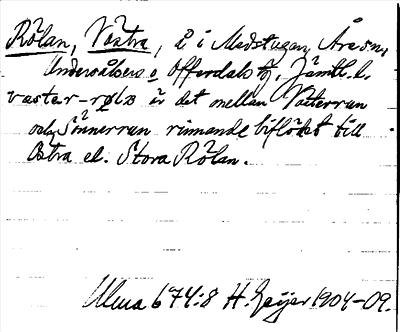 Rölan, Västra, å i Medstugan, Åre sn,
Undersåkers o Offerdals tg, Jämtl. l.
vastər-rølɒ är det mellan Vatterran
och Sönnerran rinnande biflödet till
Östra el. Stora Rölan.
Ulma 674:8 H. Geijer 1904-09.